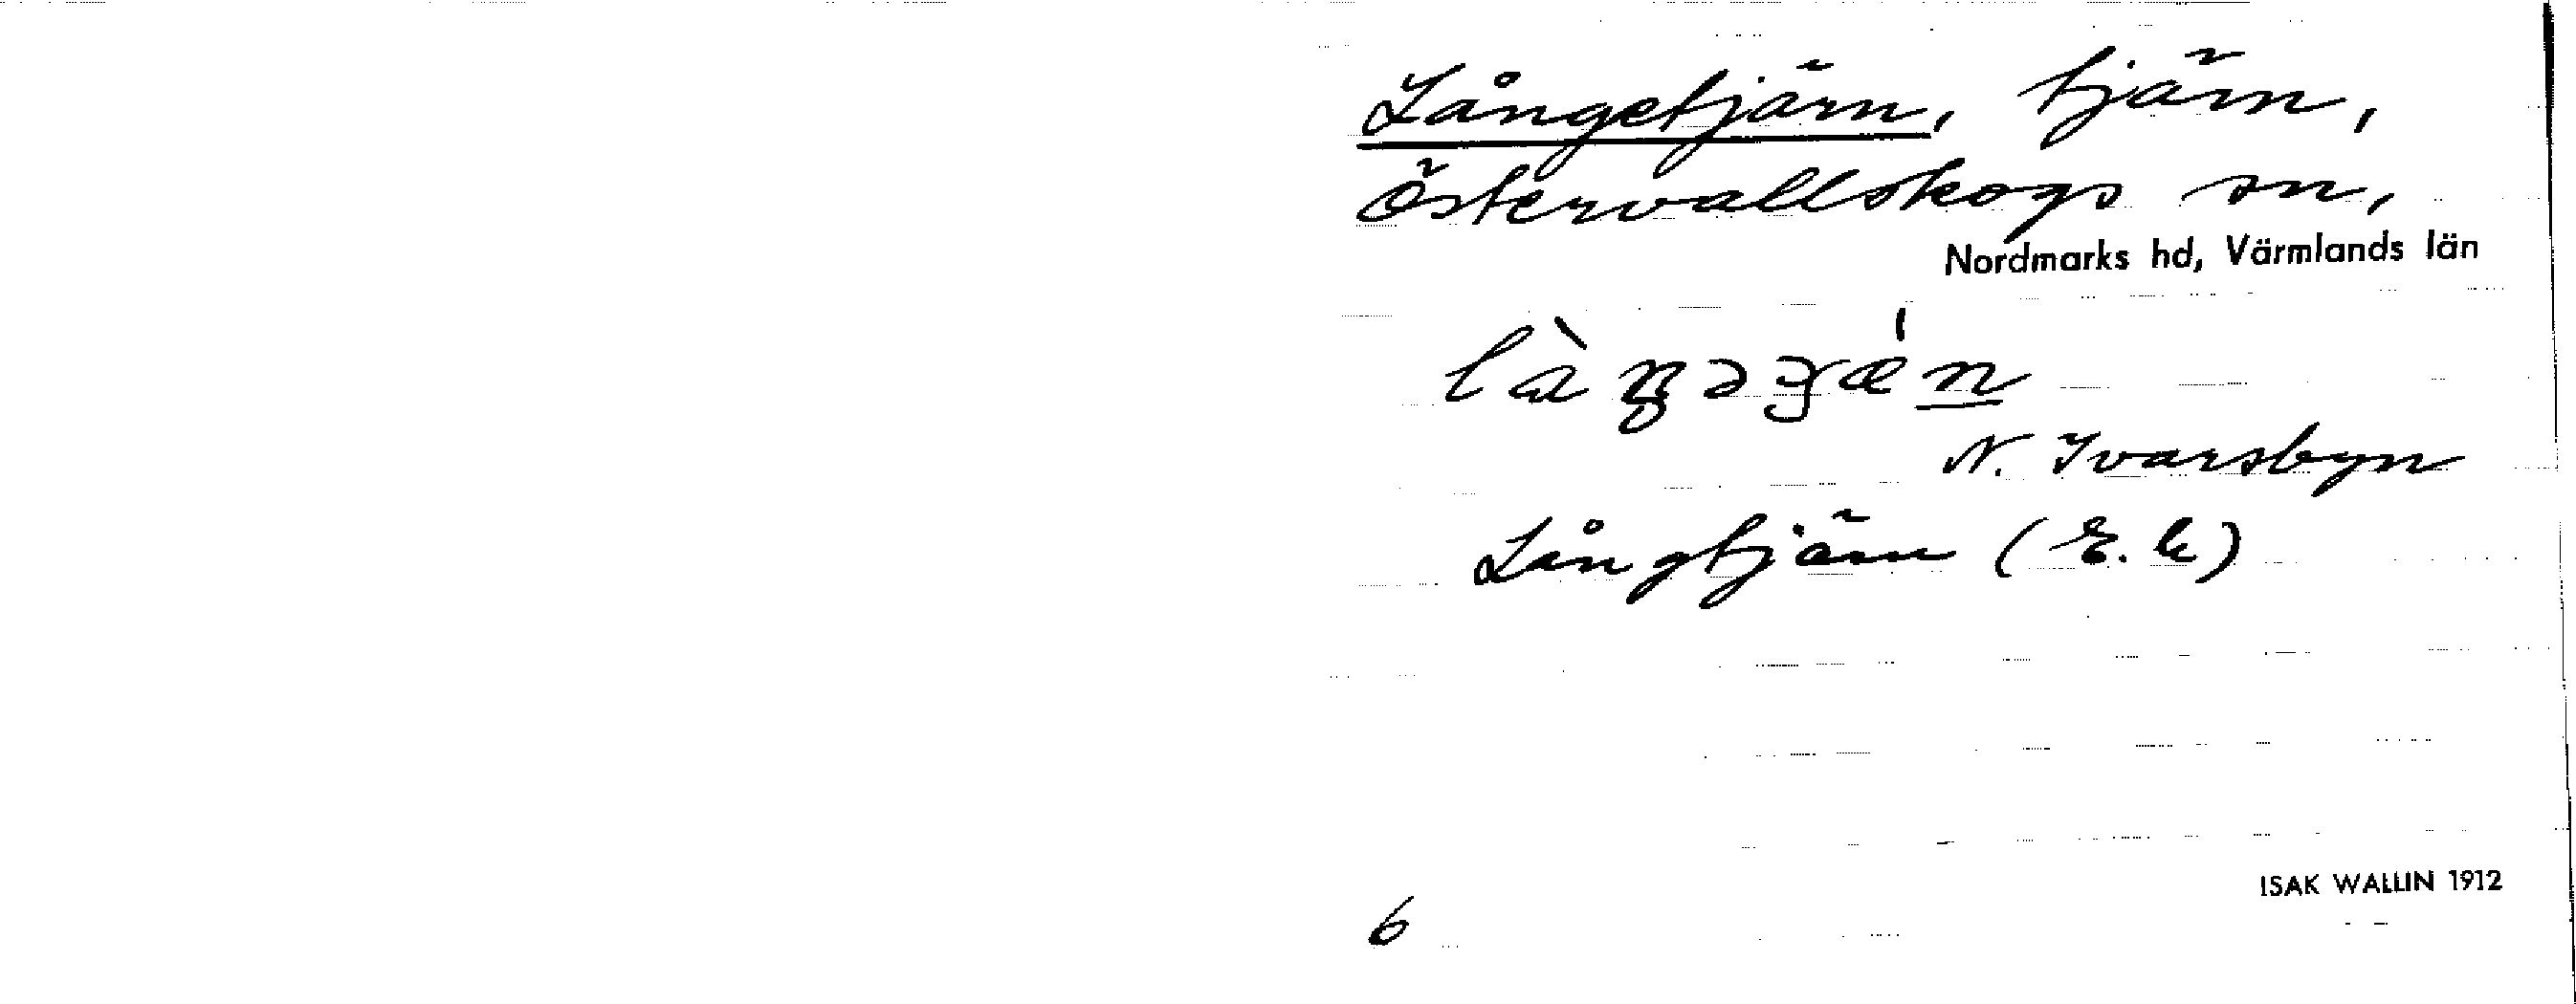 Långetjärn, tjärn,
Östervallskogs sn,
Nordmarks hd, Värmlands län
N. Ivarsbyn
Långtjärn (E.k)
ISAK WALLIN 1912
6